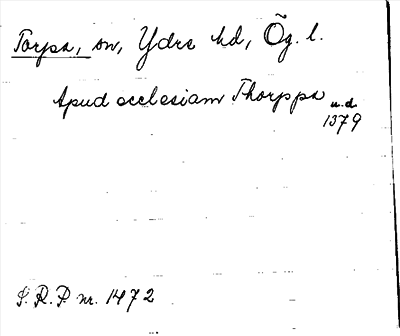 Torpa, sn, Ydre hd, Ög. l.
Apud ecclesiam Thorppa u.d.
1379
S. R. P. nr. 1472